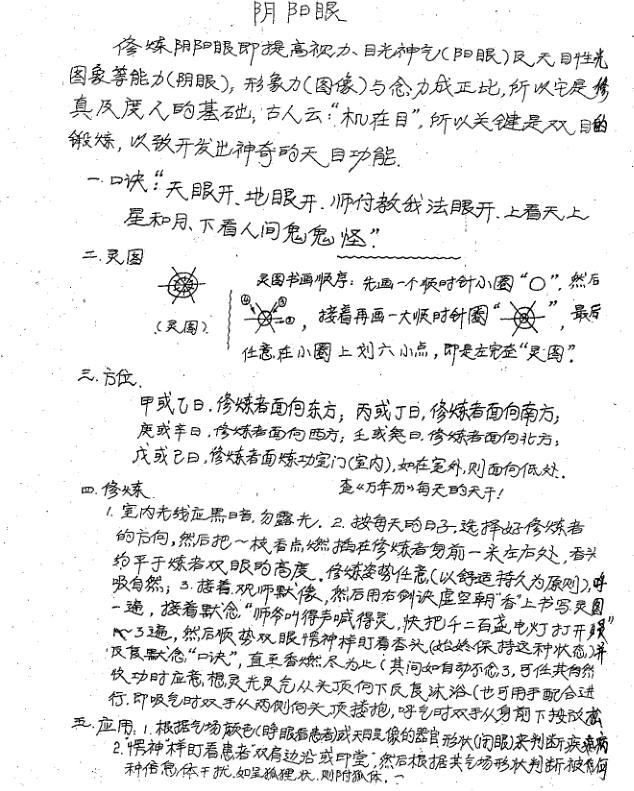 阴阳眼
修炼阴阳眼即提高视力、目光神气(阳眼)及天目性光
图象等能力(阴眼),形象力(图像)与念力成正比,所以它是修
真及度人的基础,古人云:"机在目",所以关键是双目的
锻炼,以致开发出神奇的天目功能.
一.口诀:"天眼开、地眼开.师付教我法眼开.上看天上
星和月、下看人间鬼鬼怪."
二.灵图
灵图书画顺序:先画一个顺时针小圈"○",然后
④ ③ ①,接着再画一大顺时针圈" ",最后
(灵图)
任意在小圈上划六小点,即是左完整"灵图".
三.方位.
甲或乙日.修炼者面向东方;丙或丁日,修炼者面向南方;
庚或辛日.修炼者面向西方;壬或癸日.修炼者面向北方;
戊或己日,修炼者面炼功室门(室内),如在室外,则面向低处.
查《万年历》每天的天干!
四.修炼
1.室内光线应黑暗.勿露光.2.按每天的日子选择好修炼者
的方向,然后把一枝香点燃插在修炼者身前一米左右处,香头
约平于炼者双眼的高度.修炼姿势任意(以舒适持久为原则),呼
吸自然;3.接着.观师默像,然后用右剑诀虚空朝"香"上书写灵图
一遍,接着默念"师爷叫得声喊得灵.快把千二百盏电灯打开
~3遍,然后顺势双眼愣神样盯看香头(始终保持这种状态)并
反复默念"口诀",直至香燃尽为止(其间如自动不念了,可任其自然
收功时应意想灵光灵气从头顶向下反复沐浴(也可用手配合进
行.即吸气时双手从两侧向头顶搂抱,呼气时双手从身前下按放
五.应用.1.根据气场颜色(睁眼看患者)或天目显像的器官形状(闭眼)来判断疾
2."愣神样盯看患者"双肩边沿或印堂",然后根据其气场形状判断被何
种信息体干扰.如呈狐狸状.则附狐体.一